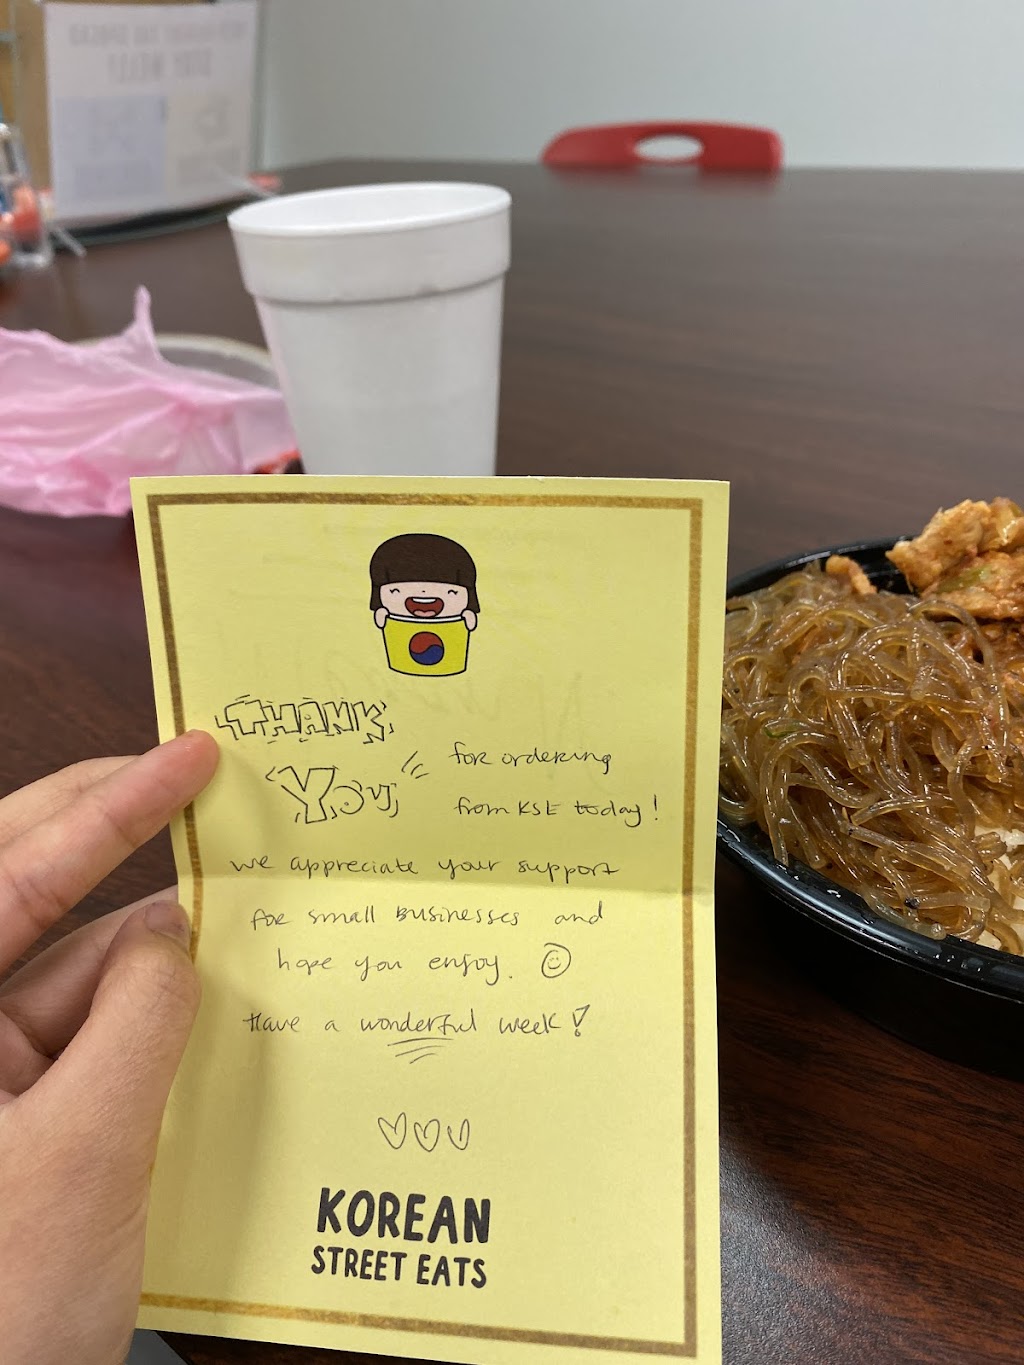 THANK
YOU for ordering
from KSE today!
we appreciate your support
for small businesses and
hope you enjoy. ☺
Have a wonderful week!
♡♡♡
KOREAN
STREET EATS